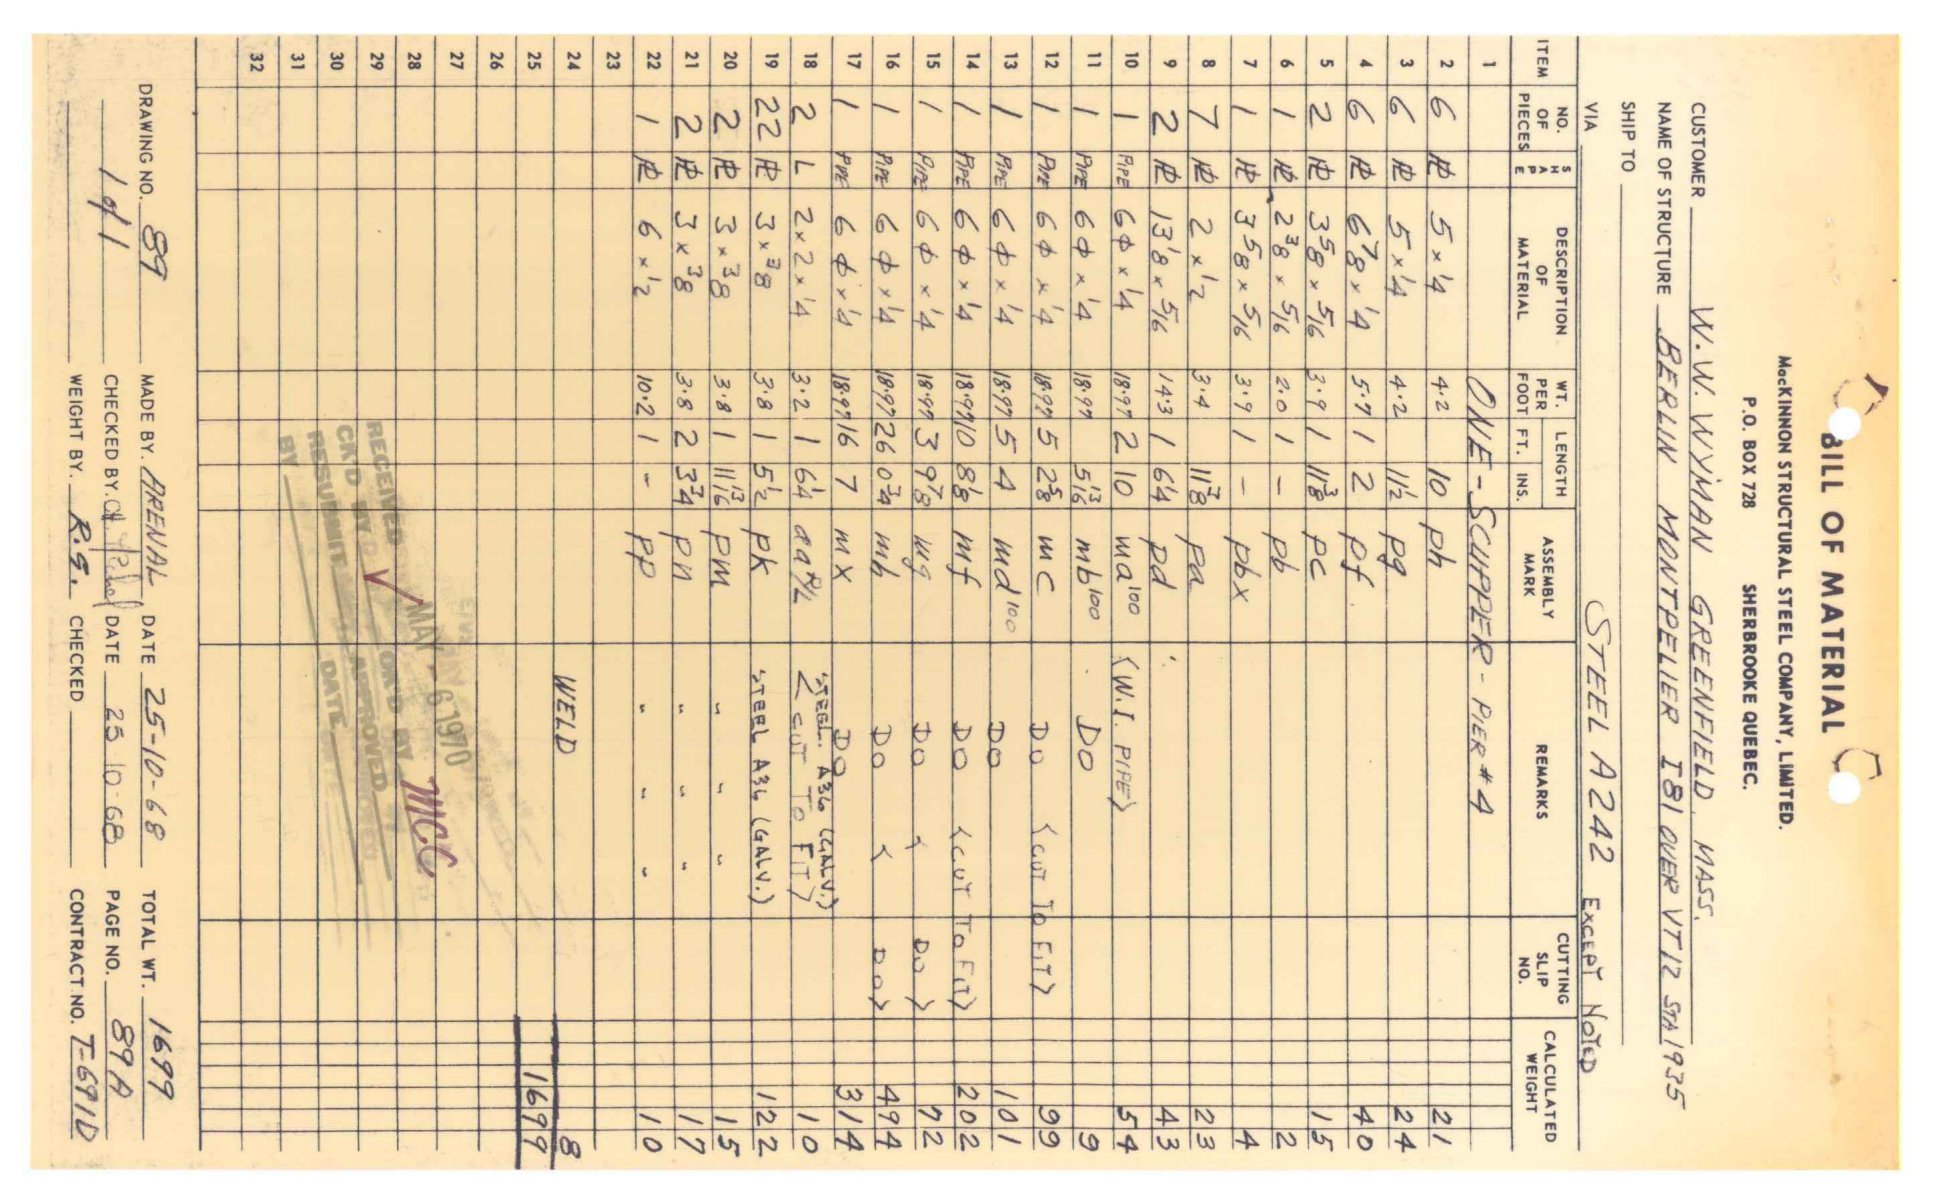 BILL OF MATERIAL
MacKINNON STRUCTURAL STEEL COMPANY, LIMITED.
P.O. BOX 728 SHERBROOKE QUEBEC.
CUSTOMER W.W. WYMAN GREENFIELD MASS.
NAME OF STRUCTURE BERLIN MONTPELIER I81 OVER VT12 STA 1935
SHIP TO
VIA STEEL A242 EXCEPT NOTED
ITEM NO. OF PIECES SHAPE DESCRIPTION OF MATERIAL WT. PER FOOT LENGTH FT. INS. ASSEMBLY MARK REMARKS CUTTING SLIP NO. CALCULATED WEIGHT
1 ONE - SCUPPER - PIER #4
2 6 PL 5 × 1/4 4.2 10 ph 21
3 6 PL 5 × 1/4 4.2 11 1/2 pg 24
4 6 PL 6 7/8 × 1/4 5.7 1 2 pf 40
5 2 PL 3 5/8 × 5/16 3.9 1 11 3/8 pc 15
6 1 PL 2 3/8 × 5/16 2.0 1 - pb 2
7 1 PL 3 5/8 × 5/16 3.9 1 - pbx 4
8 7 PL 2 × 1/2 3.4 11 7/8 pa 23
9 2 PL 13 1/8 × 5/16 14.3 1 6 1/4 pd 43
10 1 PIPE 6 φ × 1/4 18.97 2 10 ma100 (W.I. PIPE) 54
11 1 PIPE 6 φ × 1/4 18.97 5 13/16 mb100 DO 9
12 1 PIPE 6 φ × 1/4 18.97 5 2 5/8 mc DO (CUT TO FIT) 99
13 1 PIPE 6 φ × 1/4 18.97 5 4 md100 DO 101
14 1 PIPE 6 φ × 1/4 18.97 10 8 1/8 mf DO (CUT TO FIT) 202
15 1 PIPE 6 φ × 1/4 18.97 3 9 7/8 mg DO ( DO ) 72
16 1 PIPE 6 φ × 1/4 18.97 26 0 3/4 mh DO ( DO ) 494
17 1 PIPE 6 φ × 1/4 18.97 16 7 mx DO 314
18 2 L 2 × 2 × 1/4 3.2 1 6 1/4 aa R/L STEEL A36 (GALV.) (CUT TO FIT) 10
19 22 PL 3 × 3/8 3.8 1 5 1/2 pk STEEL A36 (GALV.) 122
20 2 PL 3 × 3/8 3.8 1 11 13/16 pm " " " 15
21 2 PL 3 × 3/8 3.8 2 3 3/4 pn " " " 17
22 1 PL 6 × 1/2 10.2 1 - pp " " " 10
23
24 WELD 8
25 1699
26
27
28
29
30
31
32
RECEIVED MAY - 6 1970
CK'D BY OK'D BY MCC
RESUBMIT APPROVED
BY DATE
DRAWING NO. 89 MADE BY. ARENAL DATE 25-10-68 TOTAL WT. 1699
1 of 1 CHECKED BY. DATE 25 10-68 PAGE NO. 89A
WEIGHT BY. R.S. CHECKED CONTRACT NO. T-691D